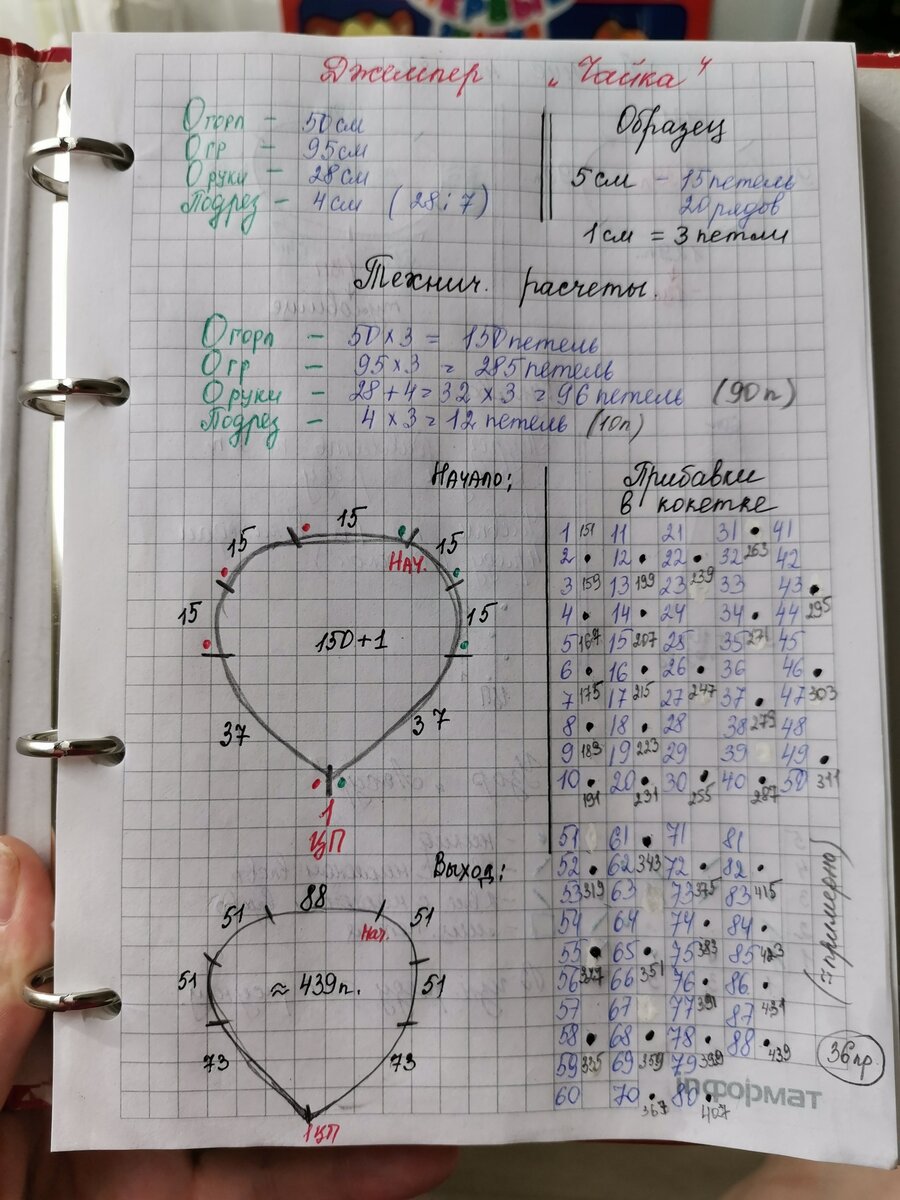 Джемпер „Чайка"
Огорл - 50см
Огр - 95см
Оруки - 28см
Подрез - 4см (28:7)
Образец
5см - 15петель
20рядов
1см = 3петли
Технич. расчеты.
Огорл - 50х3 = 150петель
Огр - 95х3 = 285петель
Оруки - 28+4=32х3 = 96петель (90п)
Подрез - 4х3=12петель (10п)
Начало:
15
15
15
Нач.
15
15
150+1
37
37
1
ЦП
Выход:
88
51
51
Нач.
51
51
≈ 439п.
73
73
1цп
Прибавки
в кокетке
1 151 11 21 31 • 41
2 • 12 • 22 • 32 263 42
3 159 13 199 23 239 33 43 •
4 • 14 • 24 34 • 44 295
5 167 15 207 25 35 271 45
6 • 16 • 26 • 36 46 •
7 175 17 215 27 247 37 • 47 303
8 • 18 • 28 38 279 48
9 183 19 223 29 39 49 •
10 • 20 • 30 • 40 • 50 311
191 231 255 287
51 61 • 71 81
52 • 62 343 72 • 82 •
53 319 63 73 375 83 415
54 64 74 • 84 •
55 • 65 • 75 383 85 423
56 327 66 351 76 • 86 •
57 67 77 391 87 431
58 • 68 • 78 • 88 • 439
59 335 69 359 79 399
60 70 • 367 80 • 407
(≈примерно)
36пр.
информат